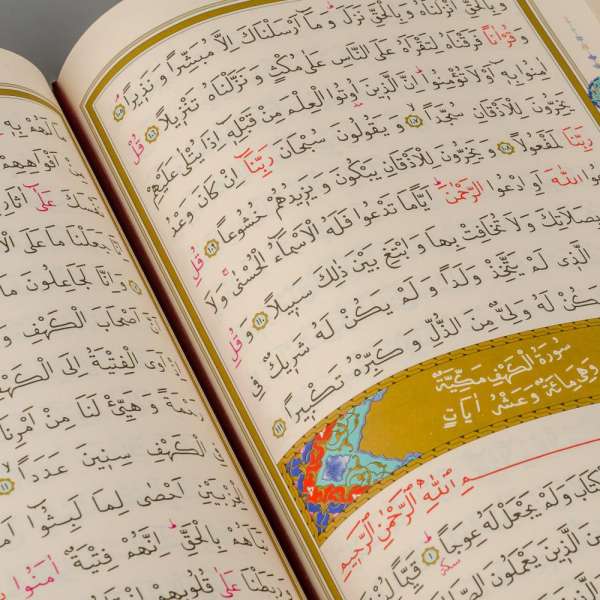 وَبِالْحَقِّ اَنْزَلْنَاهُ وَبِالْحَقِّ نَزَلَ وَمَا اَرْسَلْنَاكَ اِلَّا مُبَشِّرًا وَنَذِيرًا ١٠٥
وَقُرْاٰنًا فَرَقْنَاهُ لِتَقْرَاَهُ عَلَى النَّاسِ عَلٰى مُكْثٍ وَنَزَّلْنَاهُ تَنْزِيلًا ١٠٦ قُلْ
اٰمِنُوا بِهِ اَوْ لَا تُؤْمِنُوا اِنَّ الَّذِينَ اُوتُوا الْعِلْمَ مِنْ قَبْلِهِ اِذَا يُتْلٰى عَلَيْهِمْ
يَخِرُّونَ لِلْاَذْقَانِ سُجَّدًا ١٠٧ وَيَقُولُونَ سُبْحَانَ رَبِّنَا اِنْ كَانَ وَعْدُ
رَبِّنَا لَمَفْعُولًا ١٠٨ وَيَخِرُّونَ لِلْاَذْقَانِ يَبْكُونَ وَيَزِيدُهُمْ خُشُوعًا ١٠٩ قُلِ
اللّٰهَ اَوِ ادْعُوا الرَّحْمٰنَ اَيًّا مَا تَدْعُوا فَلَهُ الْاَسْمَاءُ الْحُسْنٰى وَلَا
بِصَلَاتِكَ وَلَا تُخَافِتْ بِهَا وَابْتَغِ بَيْنَ ذٰلِكَ سَبِيلًا ١١٠ وَقُلِ
الَّذِي لَمْ يَتَّخِذْ وَلَدًا وَلَمْ يَكُنْ لَهُ شَرِيكٌ فِي
يَكُنْ لَهُ وَلِيٌّ مِنَ الذُّلِّ وَكَبِّرْهُ تَكْبِيرًا ١١١
سُورَةُ الْكَهْفِ مَكِّيَّةٌ
وَهِيَ مِائَةٌ وَعَشْرُ اٰيَاتٍ
بِسْمِ اللّٰهِ الرَّحْمٰنِ الرَّحِيمِ
الْكِتَابَ وَلَمْ يَجْعَلْ لَهُ عِوَجًا ١ قَيِّمًا لِيُنْذِرَ
الَّذِينَ يَعْمَلُونَ الصَّالِحَاتِ
مَا لَهُمْ بِهِ
مِنْ اَفْوَاهِهِمْ
نَفْسَكَ عَلٰى اٰثَارِ
اِنَّا جَعَلْنَا مَا عَلَى
وَاِنَّا لَجَاعِلُونَ مَا
اَنَّ اَصْحَابَ الْكَهْفِ وَ
اِذْ اَوَى الْفِتْيَةُ اِلَى الْكَهْفِ
رَحْمَةً وَهَيِّئْ لَنَا مِنْ اَمْرِنَا
فِي الْكَهْفِ سِنِينَ عَدَدًا ١١
الْحِزْبَيْنِ اَحْصٰى لِمَا لَبِثُوا
نَبَاَهُمْ بِالْحَقِّ اِنَّهُمْ فِتْيَةٌ اٰمَنُوا
وَرَبَطْنَا عَلٰى قُلُوبِهِمْ